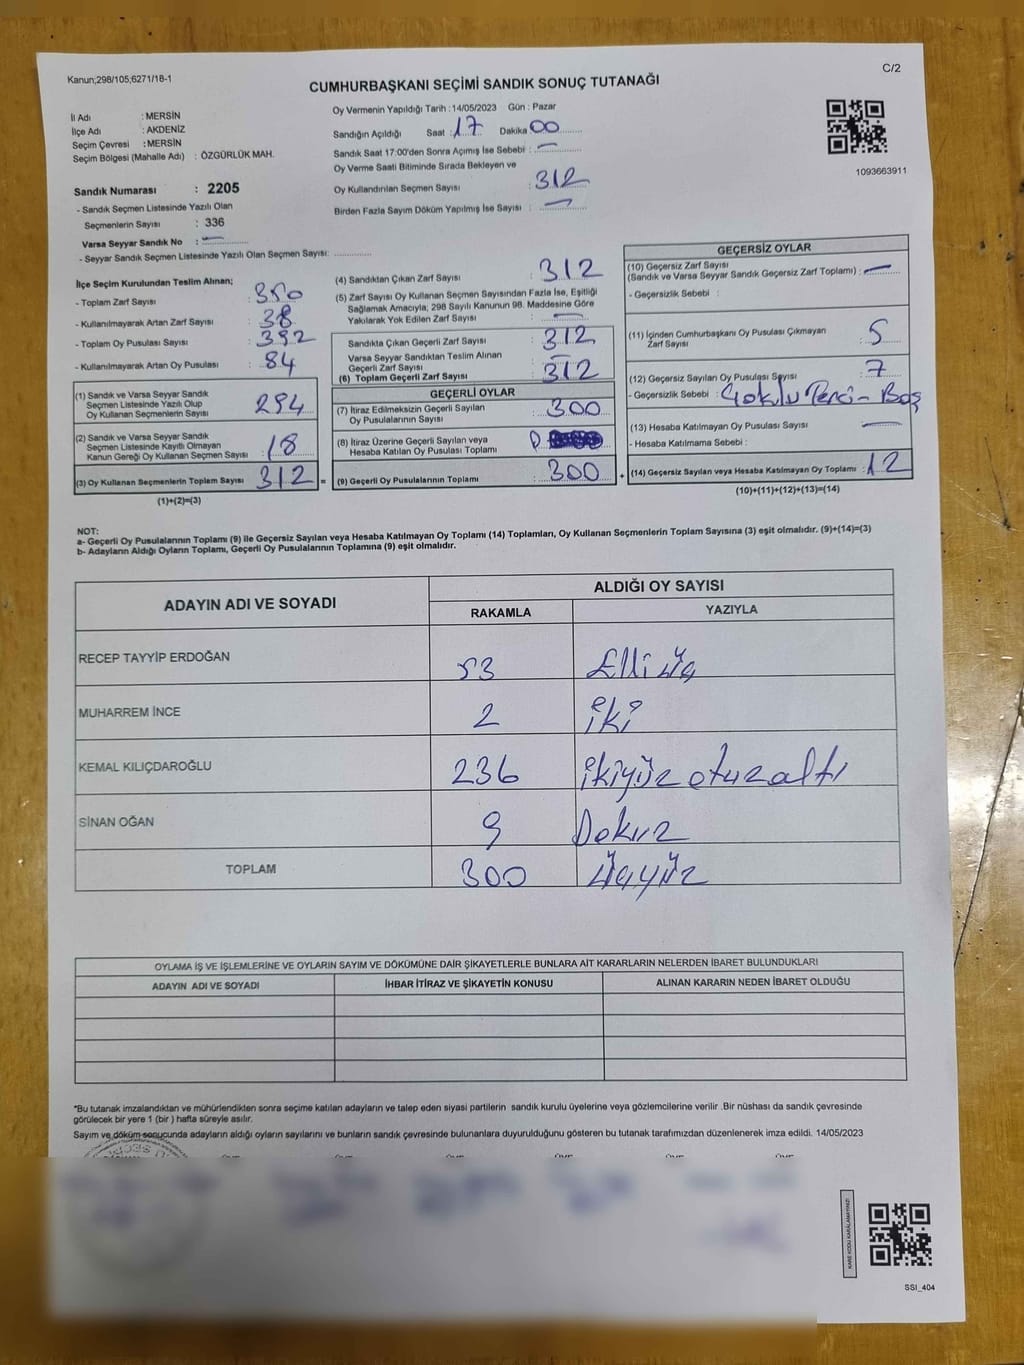 Kanun;298/105;6271/18-1
C/2
CUMHURBAŞKANI SEÇİMİ SANDIK SONUÇ TUTANAĞI
İl Adı : MERSİN
İlçe Adı : AKDENİZ
Seçim Çevresi : MERSİN
Seçim Bölgesi (Mahalle Adı) : ÖZGÜRLÜK MAH.
Sandık Numarası : 2205
- Sandık Seçmen Listesinde Yazılı Olan
Seçmenlerin Sayısı : 336
Varsa Seyyar Sandık No :
- Seyyar Sandık Seçmen Listesinde Yazılı Olan Seçmen Sayısı:
Oy Vermenin Yapıldığı Tarih : 14/05/2023 Gün : Pazar
Sandığın Açıldığı Saat : 17 Dakika 00
Sandık Saat 17:00'den Sonra Açımış İse Sebebi :
Oy Verme Saati Bitiminde Sırada Bekleyen ve
Oy Kullandırılan Seçmen Sayısı : 312
Birden Fazla Sayım Döküm Yapılmış İse Sayısı :
1093663911
İlçe Seçim Kurulundan Teslim Alınan;
- Toplam Zarf Sayısı : 350
- Kullanılmayarak Artan Zarf Sayısı : 38
- Toplam Oy Pusulası Sayısı : 392
- Kullanılmayarak Artan Oy Pusulası : 84
(1) Sandık ve Varsa Seyyar Sandık
Seçmen Listesinde Yazılı Olup
Oy Kullanan Seçmenlerin Sayısı : 294
(2) Sandık ve Varsa Seyyar Sandık
Seçmen Listesinde Kayıtlı Olmayan
Kanun Gereği Oy Kullanan Seçmen Sayısı : 18
(3) Oy Kullanan Seçmenlerin Toplam Sayısı : 312 =
(1)+(2)=(3)
(4) Sandıktan Çıkan Zarf Sayısı : 312
(5) Zarf Sayısı Oy Kullanan Seçmen Sayısından Fazla İse, Eşitliği
Sağlamak Amacıyla; 298 Sayılı Kanunun 98. Maddesine Göre
Yakılarak Yok Edilen Zarf Sayısı :
Sandıkta Çıkan Geçerli Zarf Sayısı : 312
Varsa Seyyar Sandıktan Teslim Alınan
Geçerli Zarf Sayısı :
(6) Toplam Geçerli Zarf Sayısı : 312
GEÇERLİ OYLAR
(7) İtiraz Edilmeksizin Geçerli Sayılan
Oy Pusulalarının Sayısı : 300
(8) İtiraz Üzerine Geçerli Sayılan veya
Hesaba Katılan Oy Pusulası Toplamı :
(9) Geçerli Oy Pusulalarının Toplamı : 300 +
GEÇERSİZ OYLAR
(10) Geçersiz Zarf Sayısı
(Sandık ve Varsa Seyyar Sandık Geçersiz Zarf Toplamı) :
- Geçersizlik Sebebi :
(11) İçinden Cumhurbaşkanı Oy Pusulası Çıkmayan
Zarf Sayısı : 5
(12) Geçersiz Sayılan Oy Pusulası Sayısı : 7
- Geçersizlik Sebebi : Boş
(13) Hesaba Katılmayan Oy Pusulası Sayısı :
- Hesaba Katılmama Sebebi :
(14) Geçersiz Sayılan veya Hesaba Katılmayan Oy Toplamı : 12
(10)+(11)+(12)+(13)=(14)
NOT:
a- Geçerli Oy Pusulalarının Toplamı (9) ile Geçersiz Sayılan veya Hesaba Katılmayan Oy Toplamı (14) Toplamları, Oy Kullanan Seçmenlerin Toplam Sayısına (3) eşit olmalıdır. (9)+(14)=(3)
b- Adayların Aldığı Oyların Toplamı, Geçerli Oy Pusulalarının Toplamına (9) eşit olmalıdır.
ADAYIN ADI VE SOYADI
ALDIĞI OY SAYISI
RAKAMLA YAZIYLA
RECEP TAYYİP ERDOĞAN 53 Elli üç
MUHARREM İNCE 2 iki
KEMAL KILIÇDAROĞLU 236 ikiyüzotuzaltı
SİNAN OĞAN 9 Dokuz
TOPLAM 300 üçyüz
OYLAMA İŞ VE İŞLEMLERİNE VE OYLARIN SAYIM VE DÖKÜMÜNE DAİR ŞİKAYETLERLE BUNLARA AİT KARARLARIN NELERDEN İBARET BULUNDUKLARI
ADAYIN ADI VE SOYADI İHBAR İTİRAZ VE ŞİKAYETİN KONUSU ALINAN KARARIN NEDEN İBARET OLDUĞU
*Bu tutanak imzalandıktan ve mühürlendikten sonra seçime katılan adayların ve talep eden siyasi partilerin sandık kurulu üyelerine veya gözlemcilerine verilir .Bir nüshası da sandık çevresinde
görülecek bir yere 1 (bir ) hafta süreyle asılır.
Sayım ve döküm sonucunda adayların aldığı oyların sayılarını ve bunların sandık çevresinde bulunanlara duyurulduğunu gösteren bu tutanak tarafımızdan düzenlenerek imza edildi. 14/05/2023
KARE KODU KARALAMAYINIZ!
SSI_404